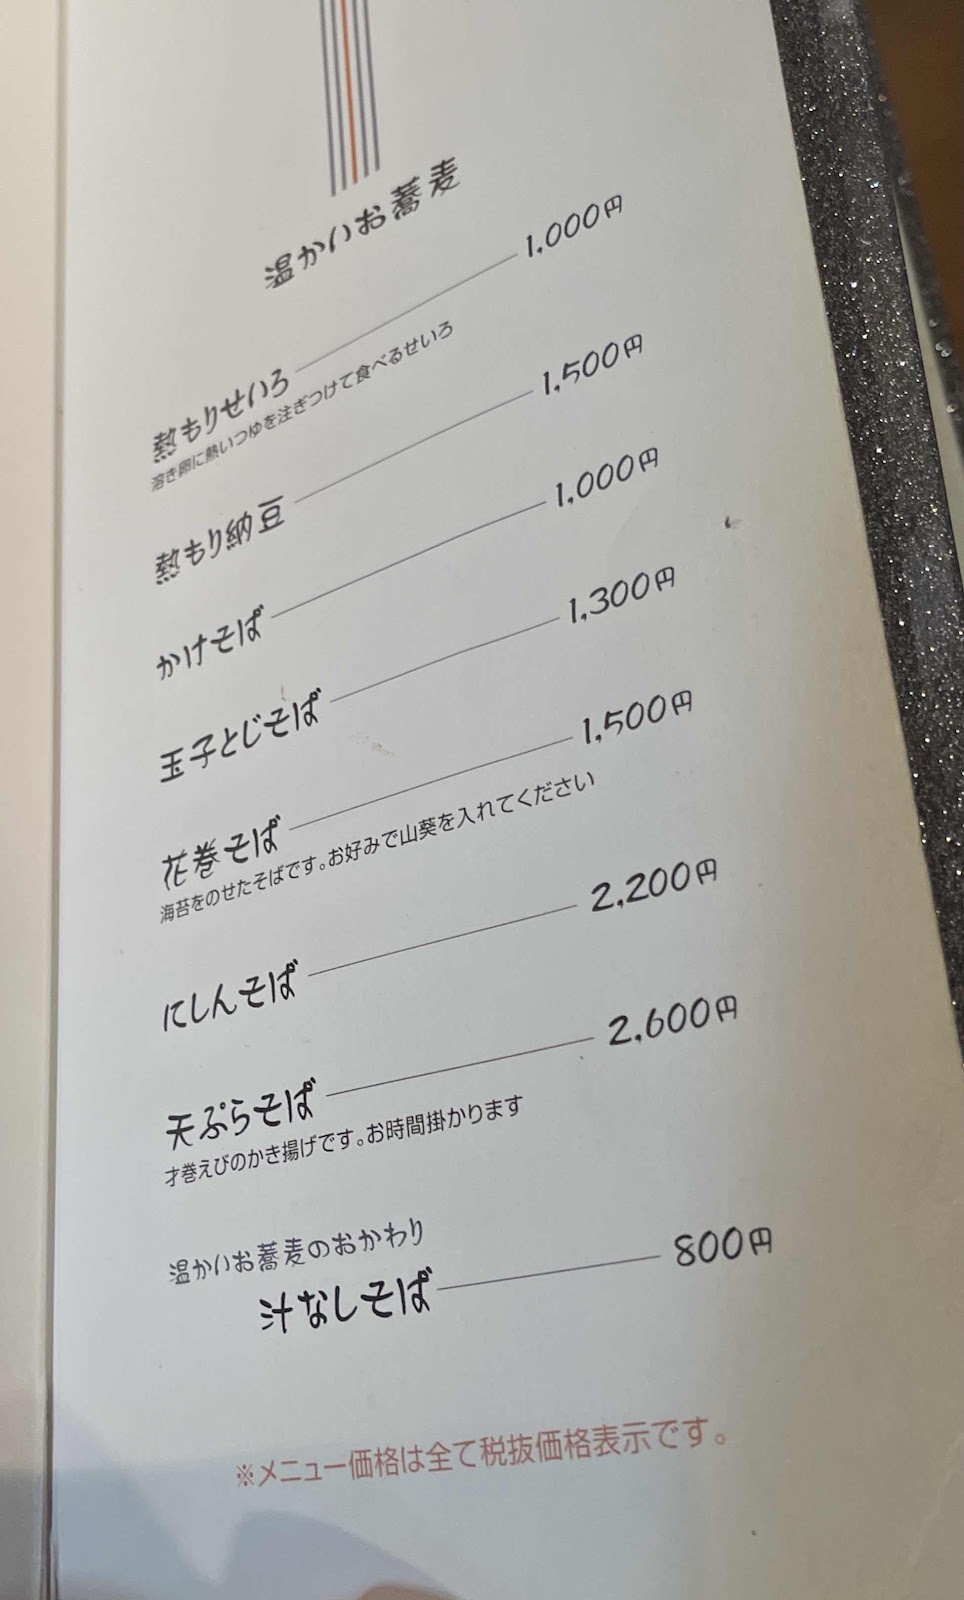 温かいお蕎麦
熱もりせいろ 1,000円
溶き卵に熱いつゆを注ぎつけて食べるせいろ
熱もり納豆 1,500円
かけそば 1,000円
玉子とじそば 1,300円
花巻そば 1,500円
海苔をのせたそばです。お好みで山葵を入れてください
にしんそば 2,200円
天ぷらそば 2,600円
才巻えびのかき揚げです。お時間掛かります
温かいお蕎麦のおかわり
汁なしそば 800円
※メニュー価格は全て税抜価格表示です。